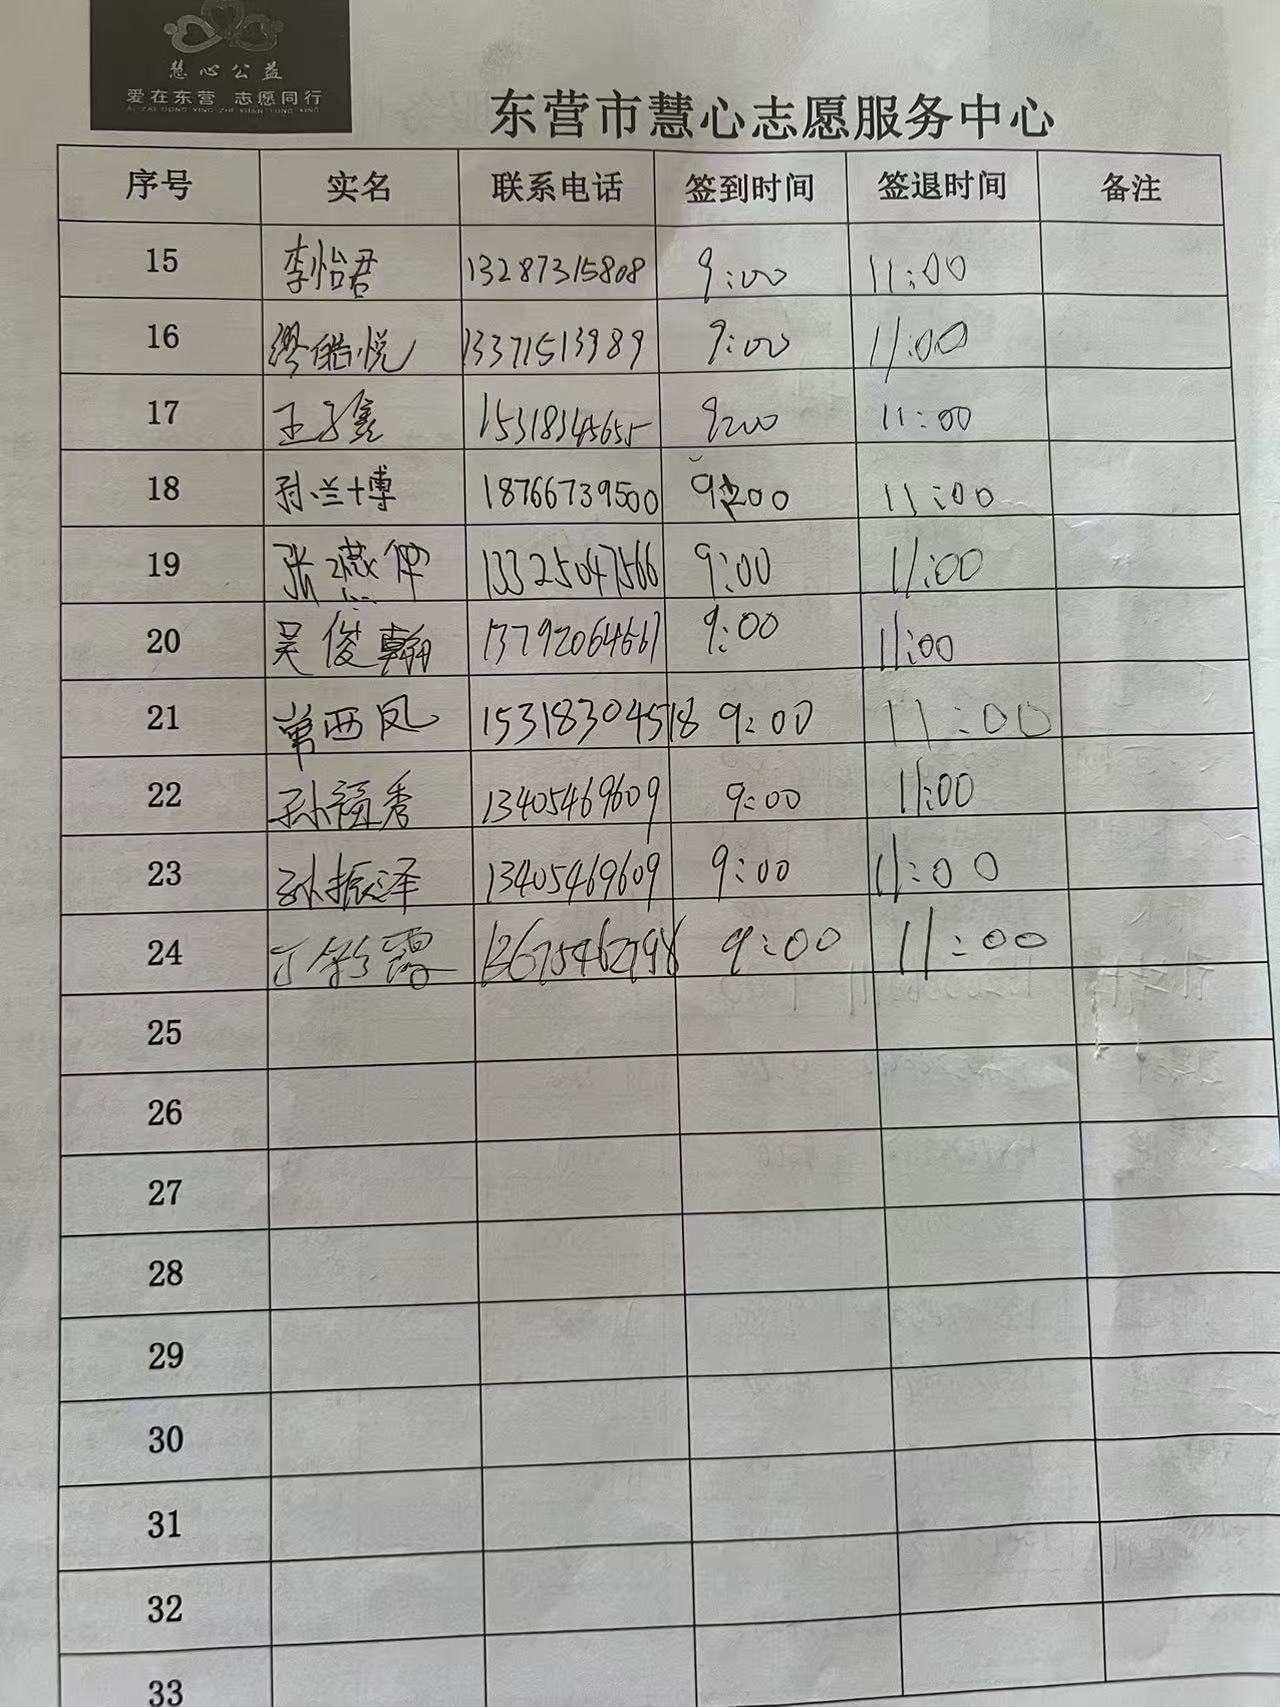 慧心公益
爱在东营 志愿同行
AI ZAI DONG YING ZHI YUAN TONG XING
东营市慧心志愿服务中心
序号 实名 联系电话 签到时间 签退时间 备注
15 李怡君 13287315808 9:00 11:00
16 缪皓悦 13371513989 9:00 11:00
17 王子鑫 15318345655 9:00 11:00
18 孙兰博 18766739500 9:00 11:00
19 张燕伟 13325047566 9:00 11:00
20 吴俊翰 13792064661 9:00 11:00
21 曾西凤 15318304518 9:00 11:00
22 孙福秀 13405469609 9:00 11:00
23 孙振泽 13405469609 9:00 11:00
24 丁彩霞 9:00 11:00
25
26
27
28
29
30
31
32
33